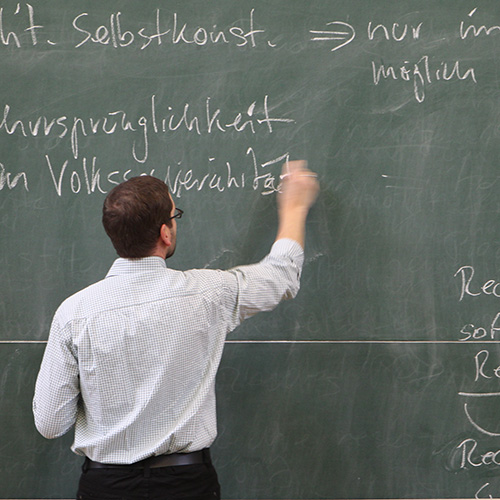 ht. Selbstkonst. ⇒ nur im
möglich
chursprünglichkeit
on Volkssouveränität
=
Rec
sof
Re
Rec